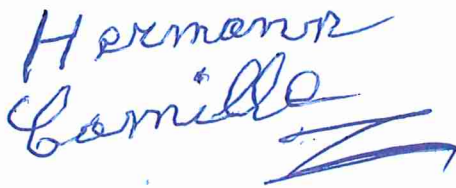 Hermann
Camille